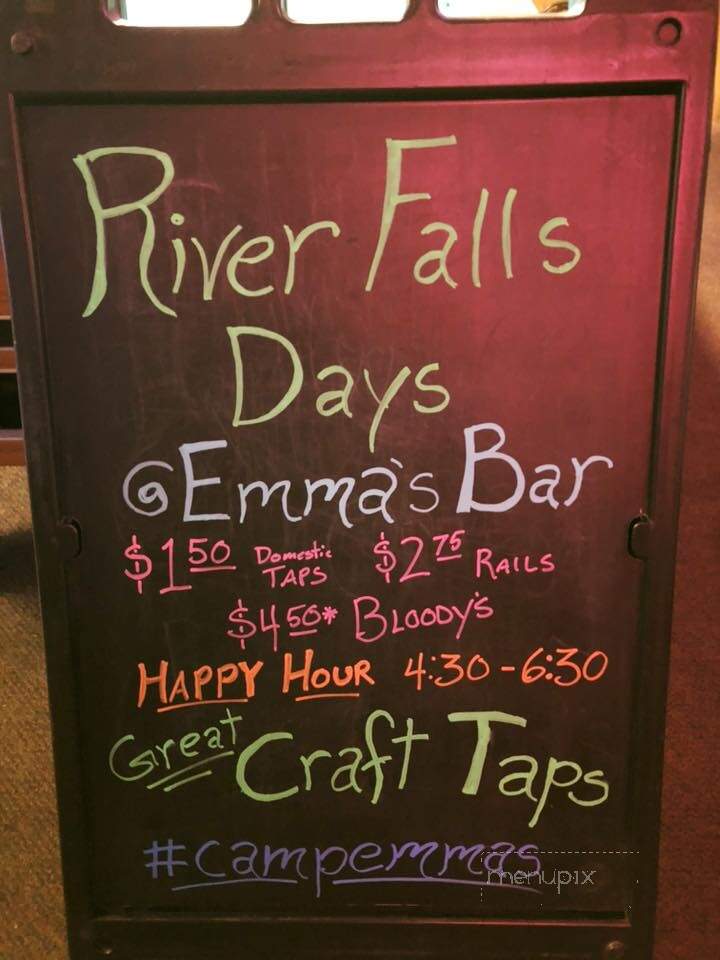 River Falls
Days
@Emma's Bar
$1.50 Domestic TAPS $2.75 RAILS
$4.50* BLOODY'S
HAPPY HOUR 4:30-6:30
Great Craft Taps
#campemmas
menupix